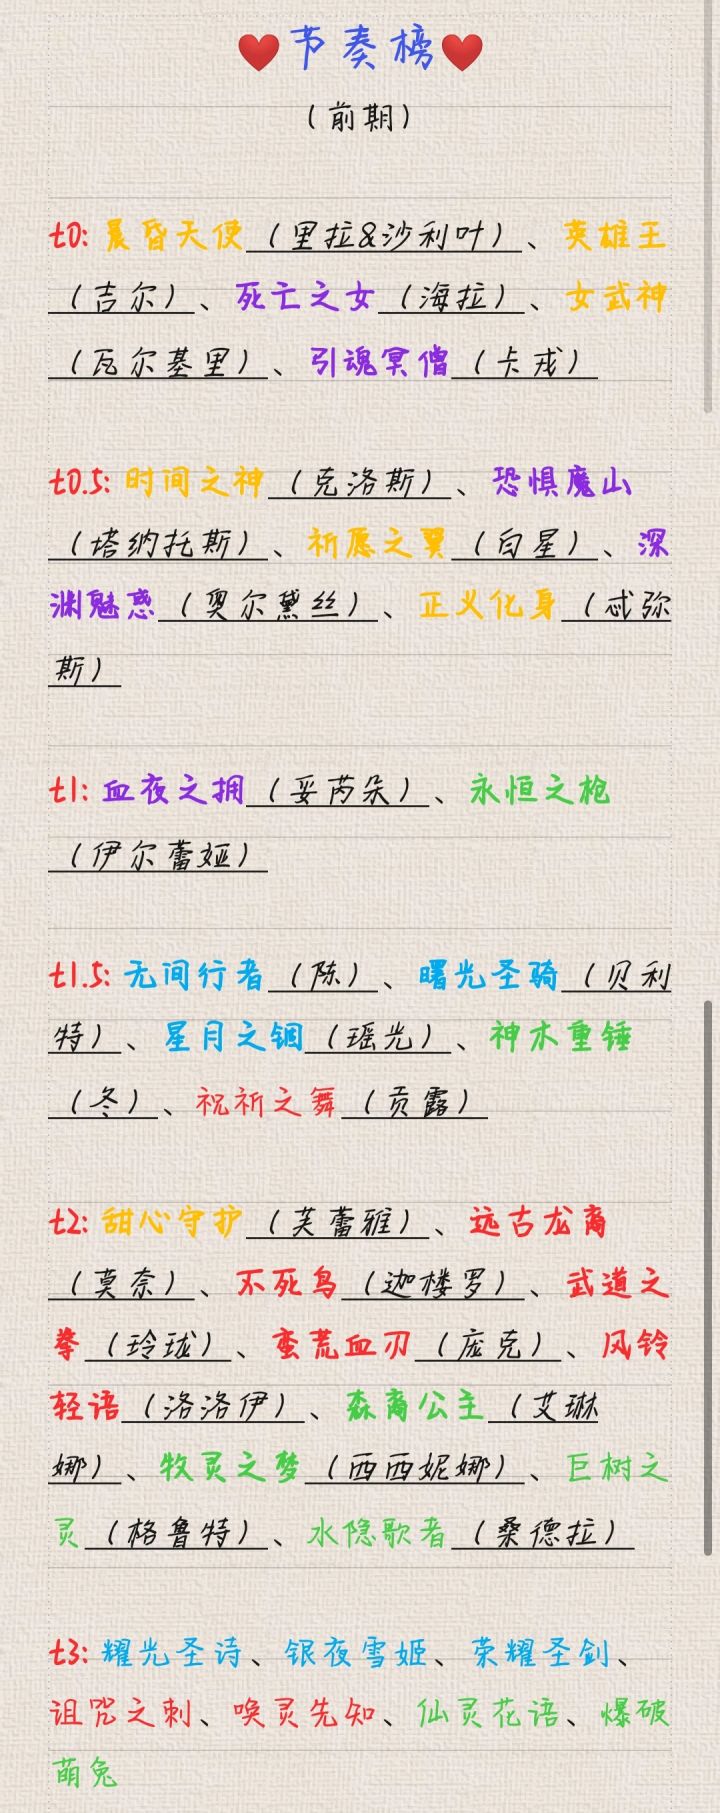 ❤️节奏榜❤️
（前期）
t0: 晨昏天使（里拉&沙利叶）、英雄王
（吉尔）、死亡之女（海拉）、女武神
（瓦尔基里）、引魂冥僧（卡戎）
t0.5: 时间之神（克洛斯）、恐惧魔山
（塔纳托斯）、祈愿之翼（白星）、深
渊魅惑（奥尔黛丝）、正义化身（忒弥
斯）
t1: 血夜之拥（妥芮朵）、永恒之枪
（伊尔蕾娅）
t1.5: 无间行者（陈）、曙光圣骑（贝利
特）、星月之锢（瑶光）、神木重锤
（冬）、祝祈之舞（贡露）
t2: 甜心守护（芙蕾雅）、远古龙裔
（莫奈）、不死鸟（迦楼罗）、武道之
拳（玲珑）、蛮荒血刃（庞克）、风铃
轻语（洛洛伊）、森裔公主（艾琳
娜）、牧灵之梦（西西妮娜）、巨树之
灵（格鲁特）、水隐歌者（桑德拉）
t3: 耀光圣诗、银夜雪姬、荣耀圣剑、
诅咒之刺、唤灵先知、仙灵花语、爆破
萌兔